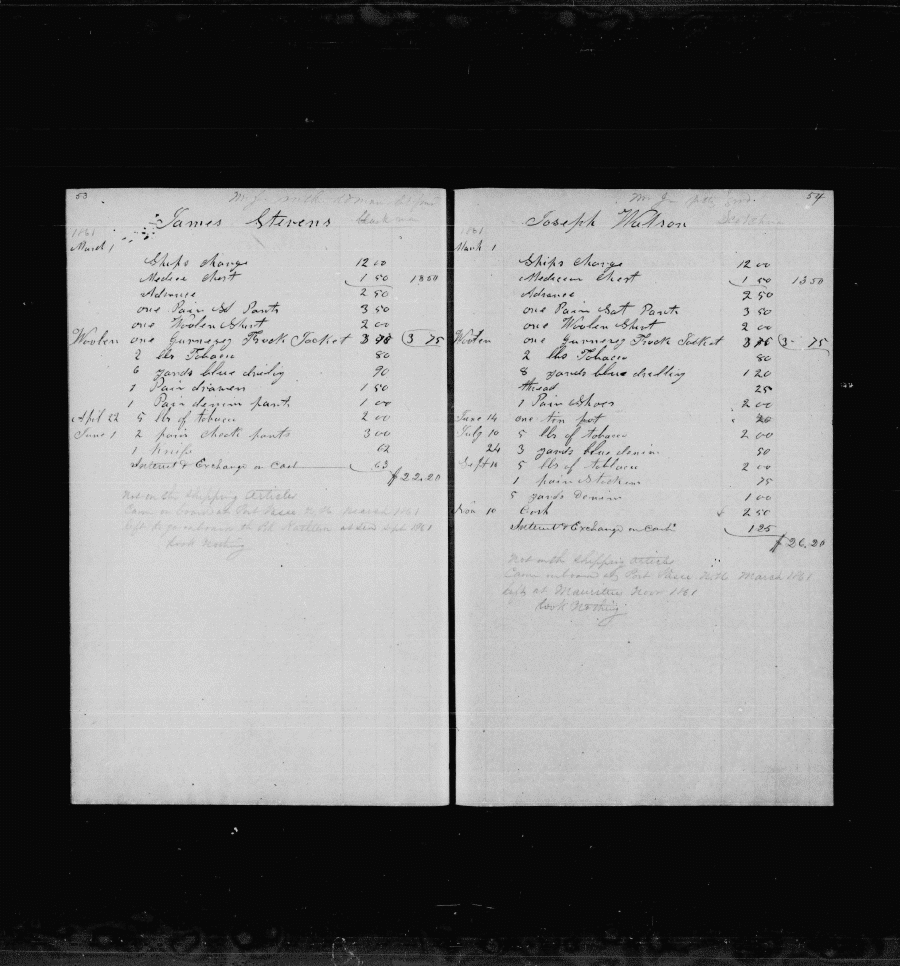 53
James Stevens
1861
March 1
Ships charge 12 00
Medicine Chest 1 50 13 50
Advance 2 50
one Pair Pants 3 50
one Woolen Shirt 2 00
Woolen one Gurnesey Frock Jacket 3 75 3 75
2 lbs Tobacco 80
6 yards blue driling 90
1 Pair drawers 1 50
1 Pair denim pants 1 00
April 22 5 lbs of tobacco 2 00
June 1 2 pair check pants 3 00
1 knife 62
Interest & Exchange on Cash 63
$22.20
Not on the shipping Articles
Came on board at Port March 1861
Sept 1861
took Nothing
54
Joseph Watson
1861
March 1
Ships Charge 12 00
Medicine Chest 1 50 13 50
Advance 2 50
one Pair Sat Pants 3 50
one Woolen Shirt 2 00
Woolen one Gurnesey Frock Jacket 3 75 3 75
2 lbs Tobacco 80
8 yards blue drilling 1 20
thread 25
1 Pair Shoes 2 00
June 14 one tin pot 20
July 10 5 lbs of tobacco 2 00
24 3 yards blue denim 50
Sept 5 lbs of tobacco 2 00
1 pair Stockins 75
5 yards Denim 1 00
Nov 10 Cash 2 50
Interest & Exchange on Cash 1 25
$26.20
Not on the shipping Articles
Came on board at Port March 1861
left at Nov 1861
took Nothing